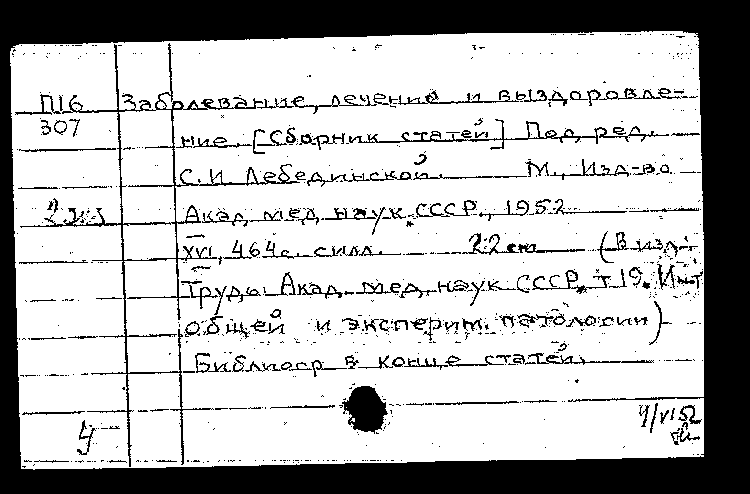 П16 Заболевание, лечение и выздоровле-
307
ние. [Сборник статей] Под ред.
С.И. Лебединской. М., Изд-во
2 экз Акад. мед. наук СССР., 1952
XVI, 464 с. с илл. 22 см (В изд.:
Труды Акад. мед. наук СССР. т 19. Инт
общей и эксперим. патологии)
Библиогр в конце статей.
У 4/VI 52